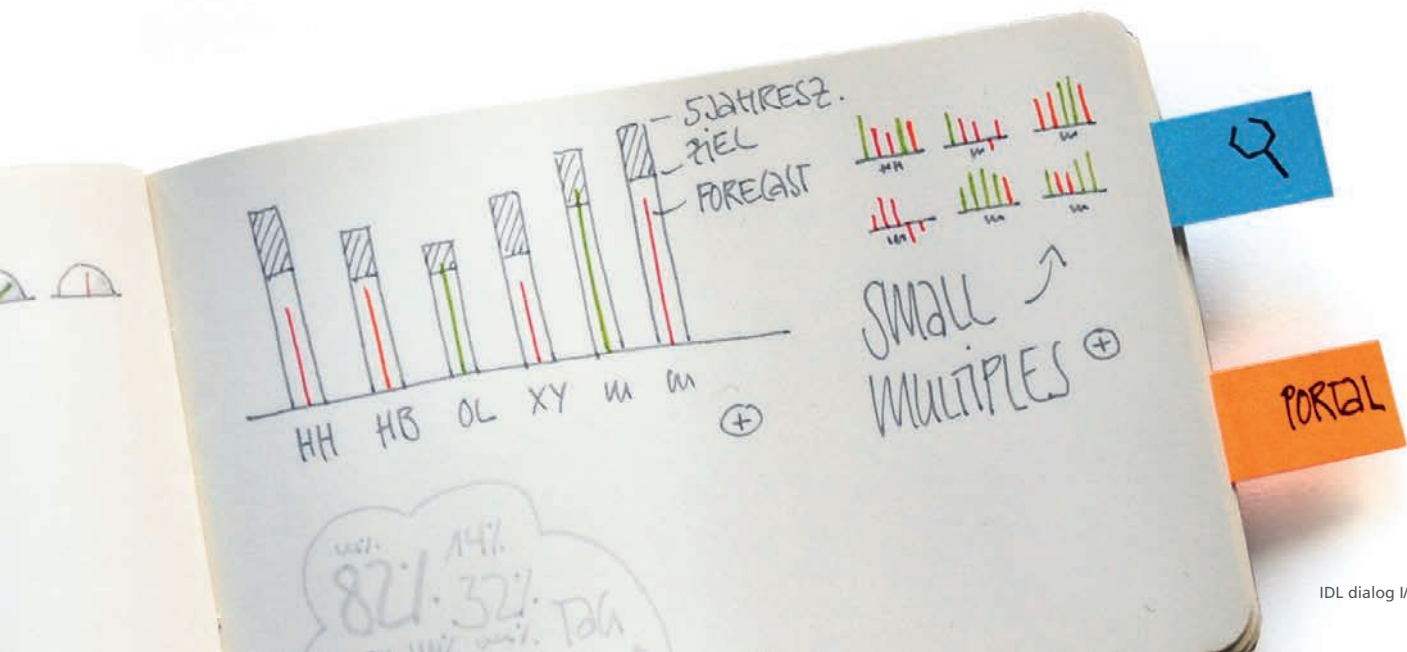 5JAHRESZ.
ZIEL
FORECAST
HH HB OL XY
SMALL
MULTIPLES
PORTAL
82% 14%
32%
TAG
IDL dialog I/